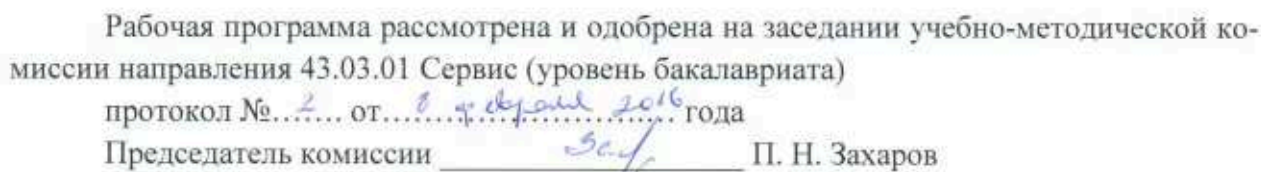 Рабочая программа рассмотрена и одобрена на заседании учебно-методической ко-
миссии направления 43.03.01 Сервис (уровень бакалавриата)
протокол №...2.... от...8 февраля 2016 года
Председатель комиссии ____________________ П. Н. Захаров